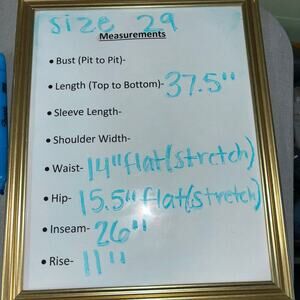 Size 29
Measurements
• Bust (Pit to Pit)-
• Length (Top to Bottom)- 37.5"
• Sleeve Length-
• Shoulder Width-
• Waist- 14" flat(stretch)
• Hip- 15.5" flat(stretch)
• Inseam- 26"
• Rise- 11"